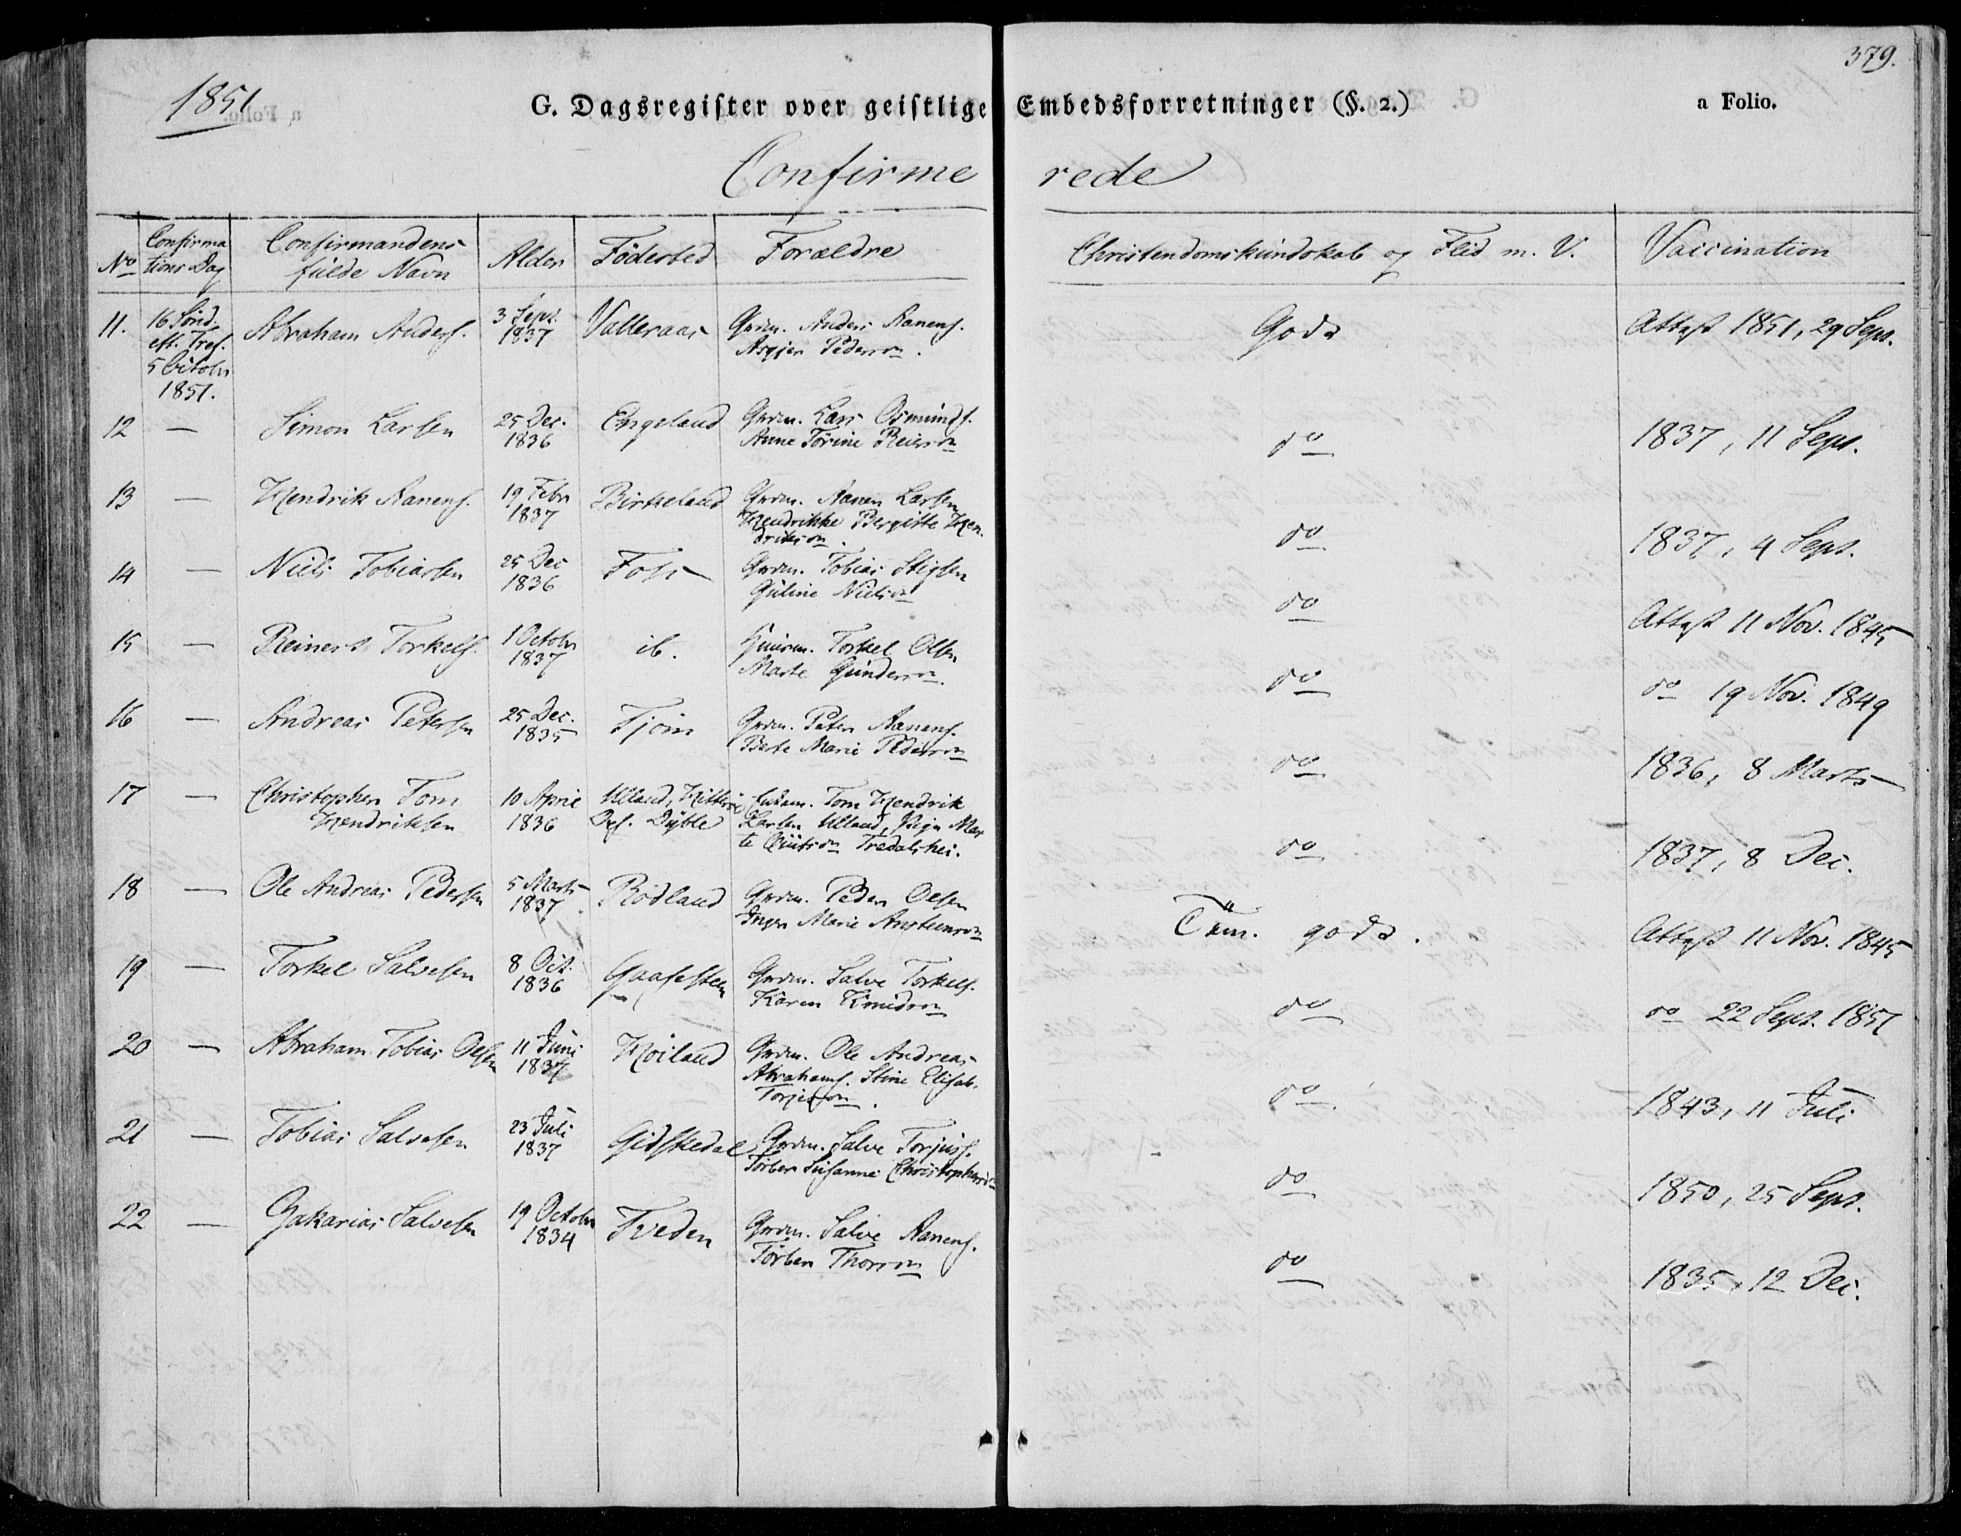 379.
1851
G. Dagsregister over geistlige Embedsforretninger (§. 2.)
a Folio.
Confirmerede
No
Confirmations Dag
Confirmandens fulde Navn
Alder
Födested
Forældre
Christendomskundskab og Flid m. V.
Vaccination
11. 16 Sönd. eft. Tref. 5 Octobr 1851. Abraham Anders. 3 Sept. 1837 Valleraas Grdm. Anders Aanens. Asgjer Pedersdn. Goda Attest 1851, 29 Sept.
12 — Simon Larsen 25 Dec. 1836 Engeland Grdm. Lars Osmunds. Anne Törine Reiersdn do 1837, 11 Sept.
13 — Hendrik Aanens. 19 Febr 1837 Birkeland Grdm. Aanen Larsen Hendrikke Bergitte Hendriksdn. do 1837, 4 Sept.
14 — Niels Tobiassen 25 Dec 1836 Foss Grdm. Tobias Stigsen Guline Nielsdn do Attest 11 Nov. 1845
15 — Reinert Torkels. 1 Octobr 1837 ib. Huusm. Torkel Olsen Marte Gundersdn. do do 19 Nov. 1849
16 — Andreas Petersen 25 Dec. 1835 Fjom Grdm. Peter Aanens. Berte Marie Pedersdn do 1836, 8 Marts
17 — Christopher Tom Hendriksen 10 April 1836 Ulland, Hitterö Dyble Tom Hendrik Larsen Ulland, Pige Marte Tredalshei. do 1837, 8 Dec.
18 — Ole Andreas Pedersen 5 Marts 1837 Rödland Grdm. Peder Olsen Inger Marie Austensdn Tem. goda. Attest 11 Nov. 1845
19 — Torkel Salvesen 8 Oct. 1836 Gaasesteen Grdm. Salve Torkels. Karen Knudsdn do do 22 Sept. 1851
20 — Abraham Tobias Olsen 11 Juni 1837 Höiland Grdm. Ole Andreas Abrahams. Stine Elisab. Torjesdn. do 1843, 11 Juli
21 — Tobias Salvesen 23 Juli 1837 Gidskedal Grdm. Salve Torjuss. Torber Susanne Christophersdn do 1850, 25 Sept.
22 — Zakarias Salvesen 19 Octobr 1834 Tveden Grdm. Salve Aanens. Törber Thorsdn do 1835, 12 Dec.